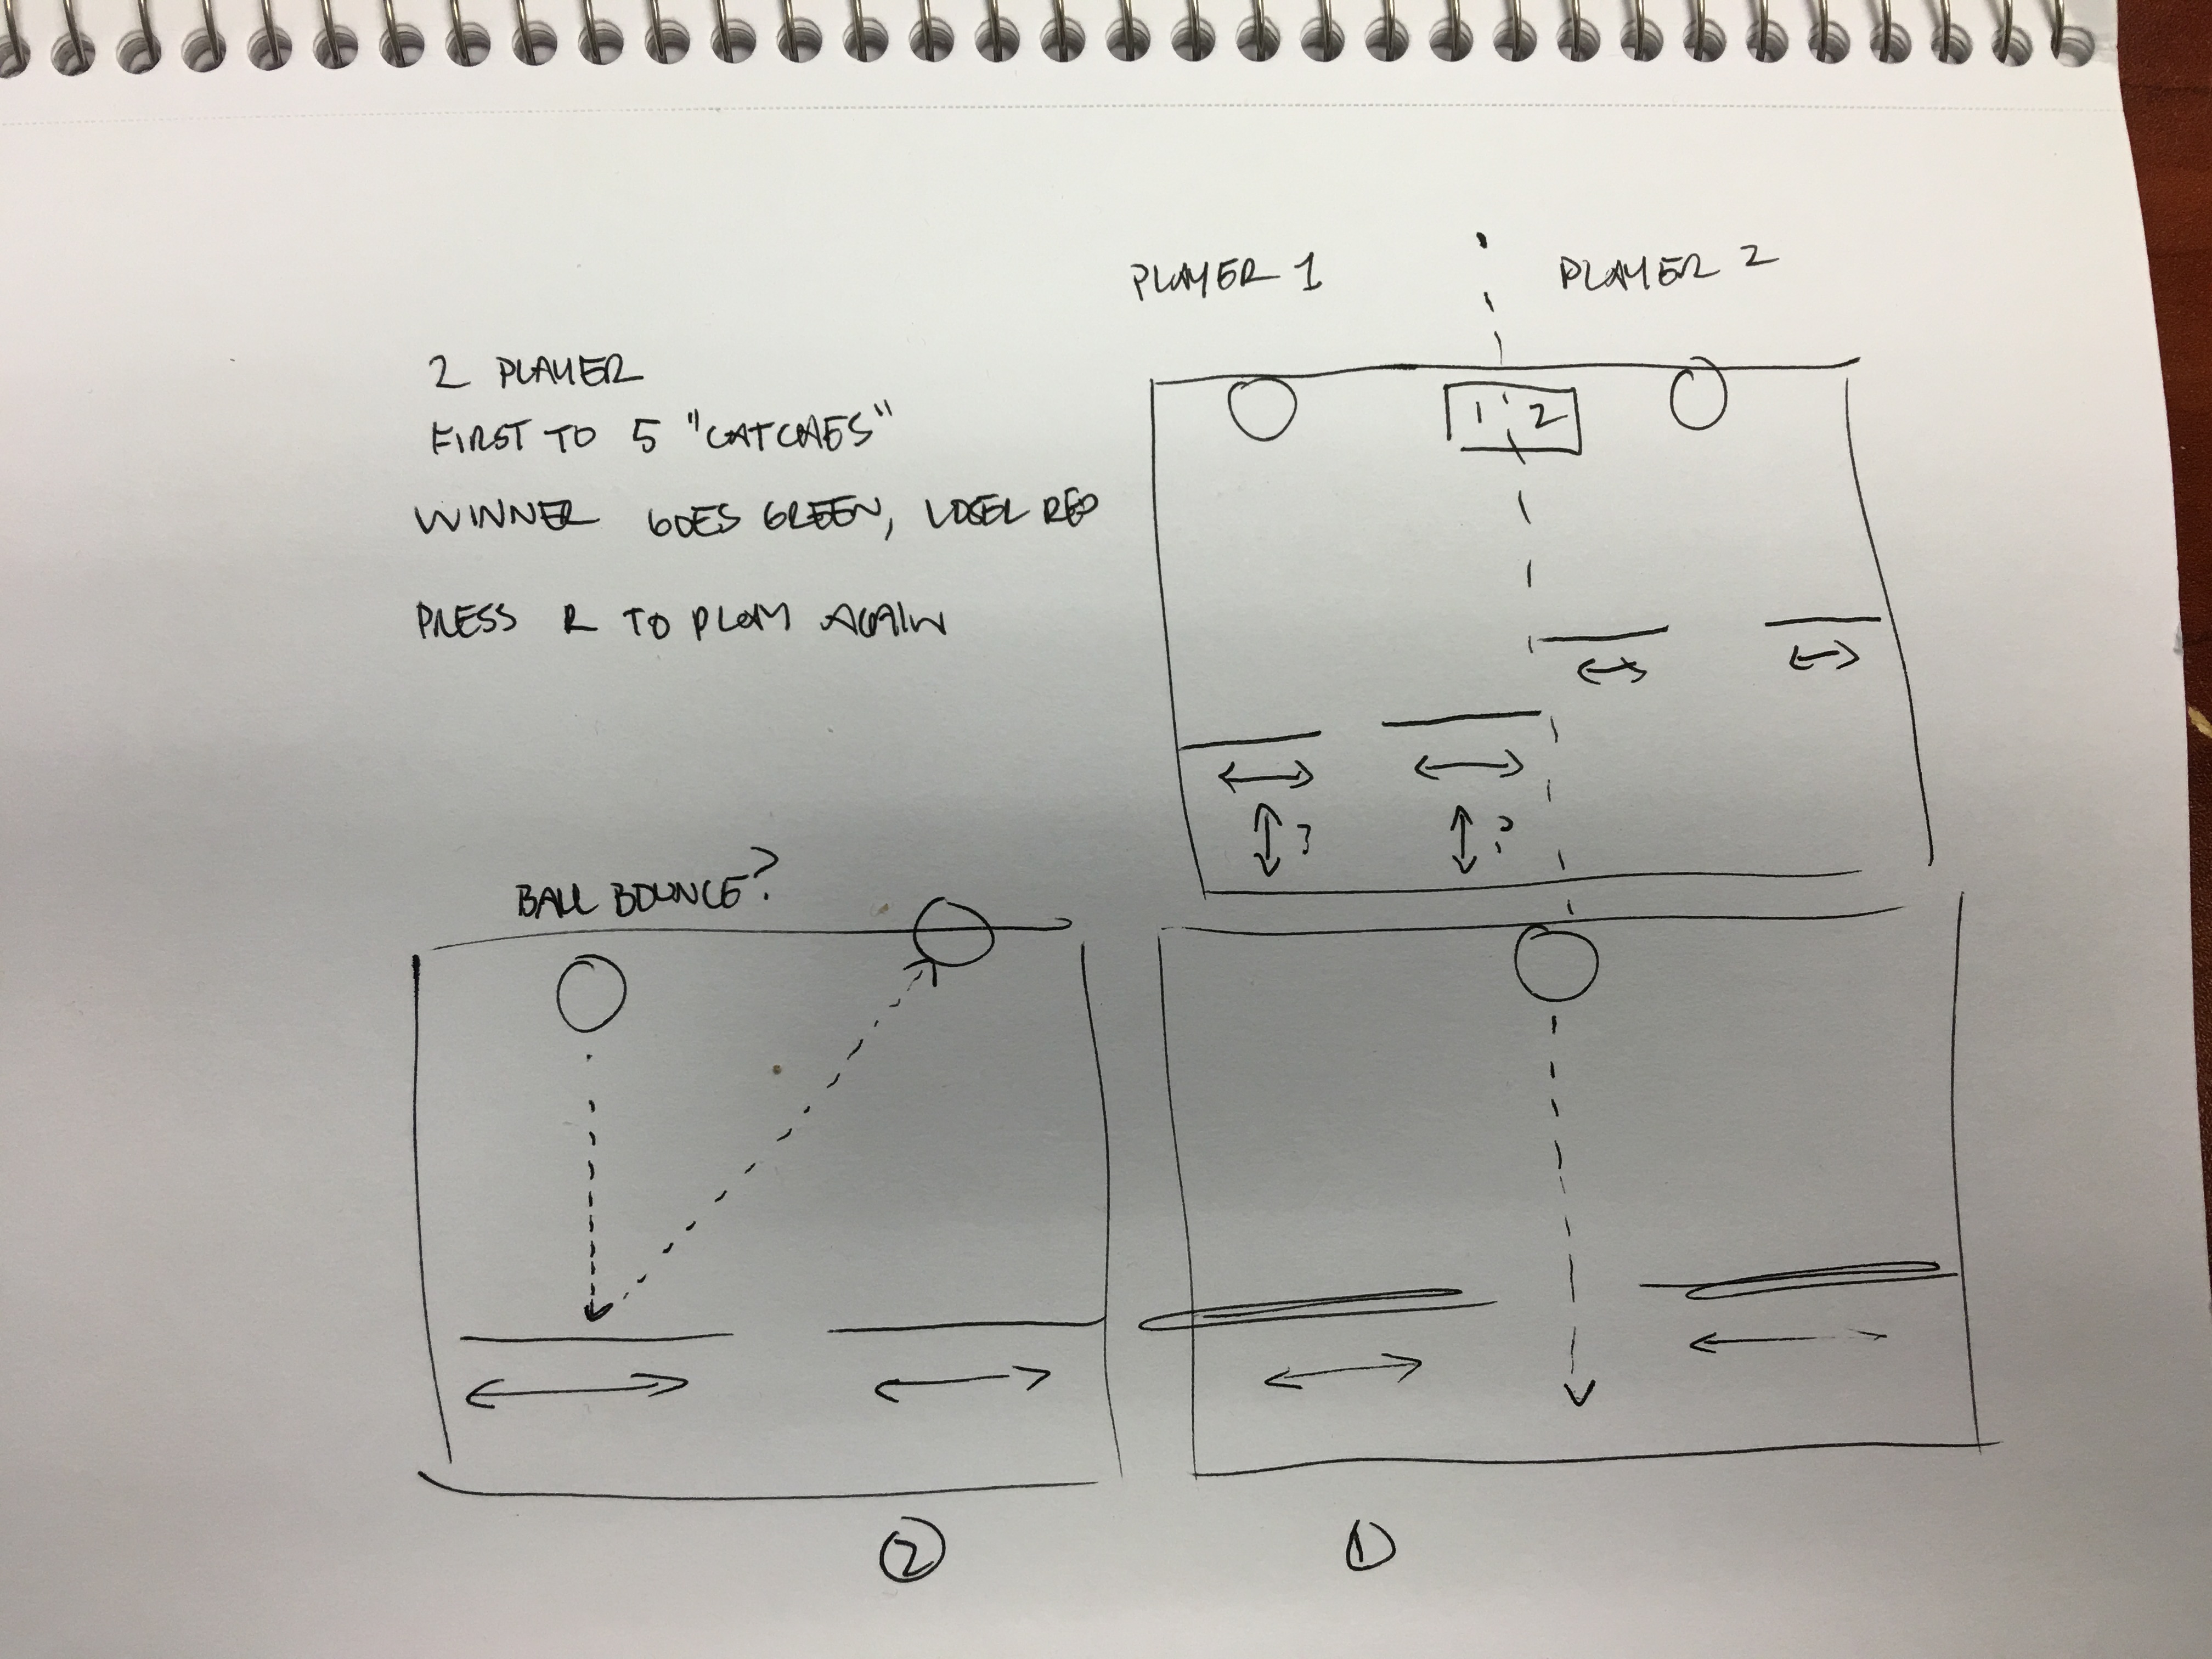 2 PLAYER
FIRST TO 5 "CATCHES"
WINNER GOES GREEN, LOSER RED
PRESS R TO PLAY AGAIN
PLAYER 1
PLAYER 2
1 2
?
?
BALL BOUNCE?
2
1